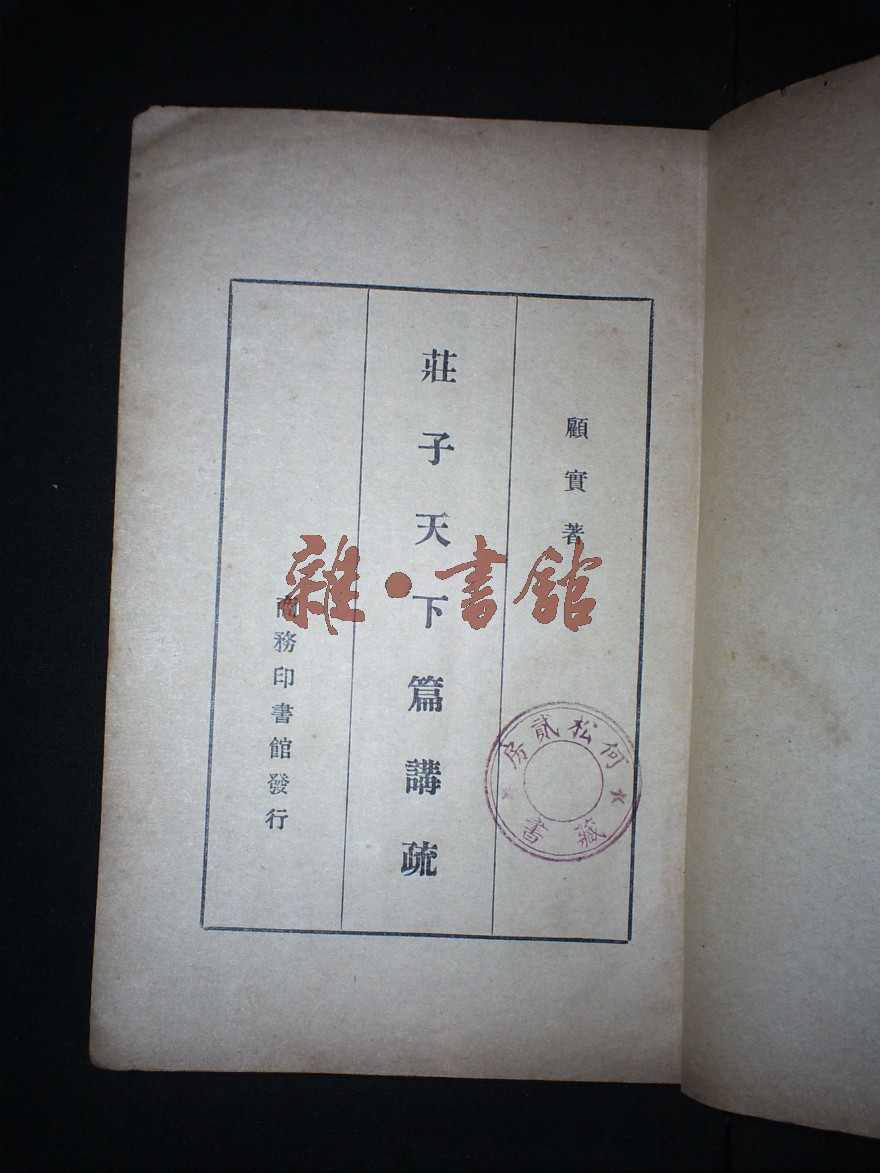 顧實著
莊子天下篇講疏
商務印書館發行
雜·書館
何松貳房
藏書